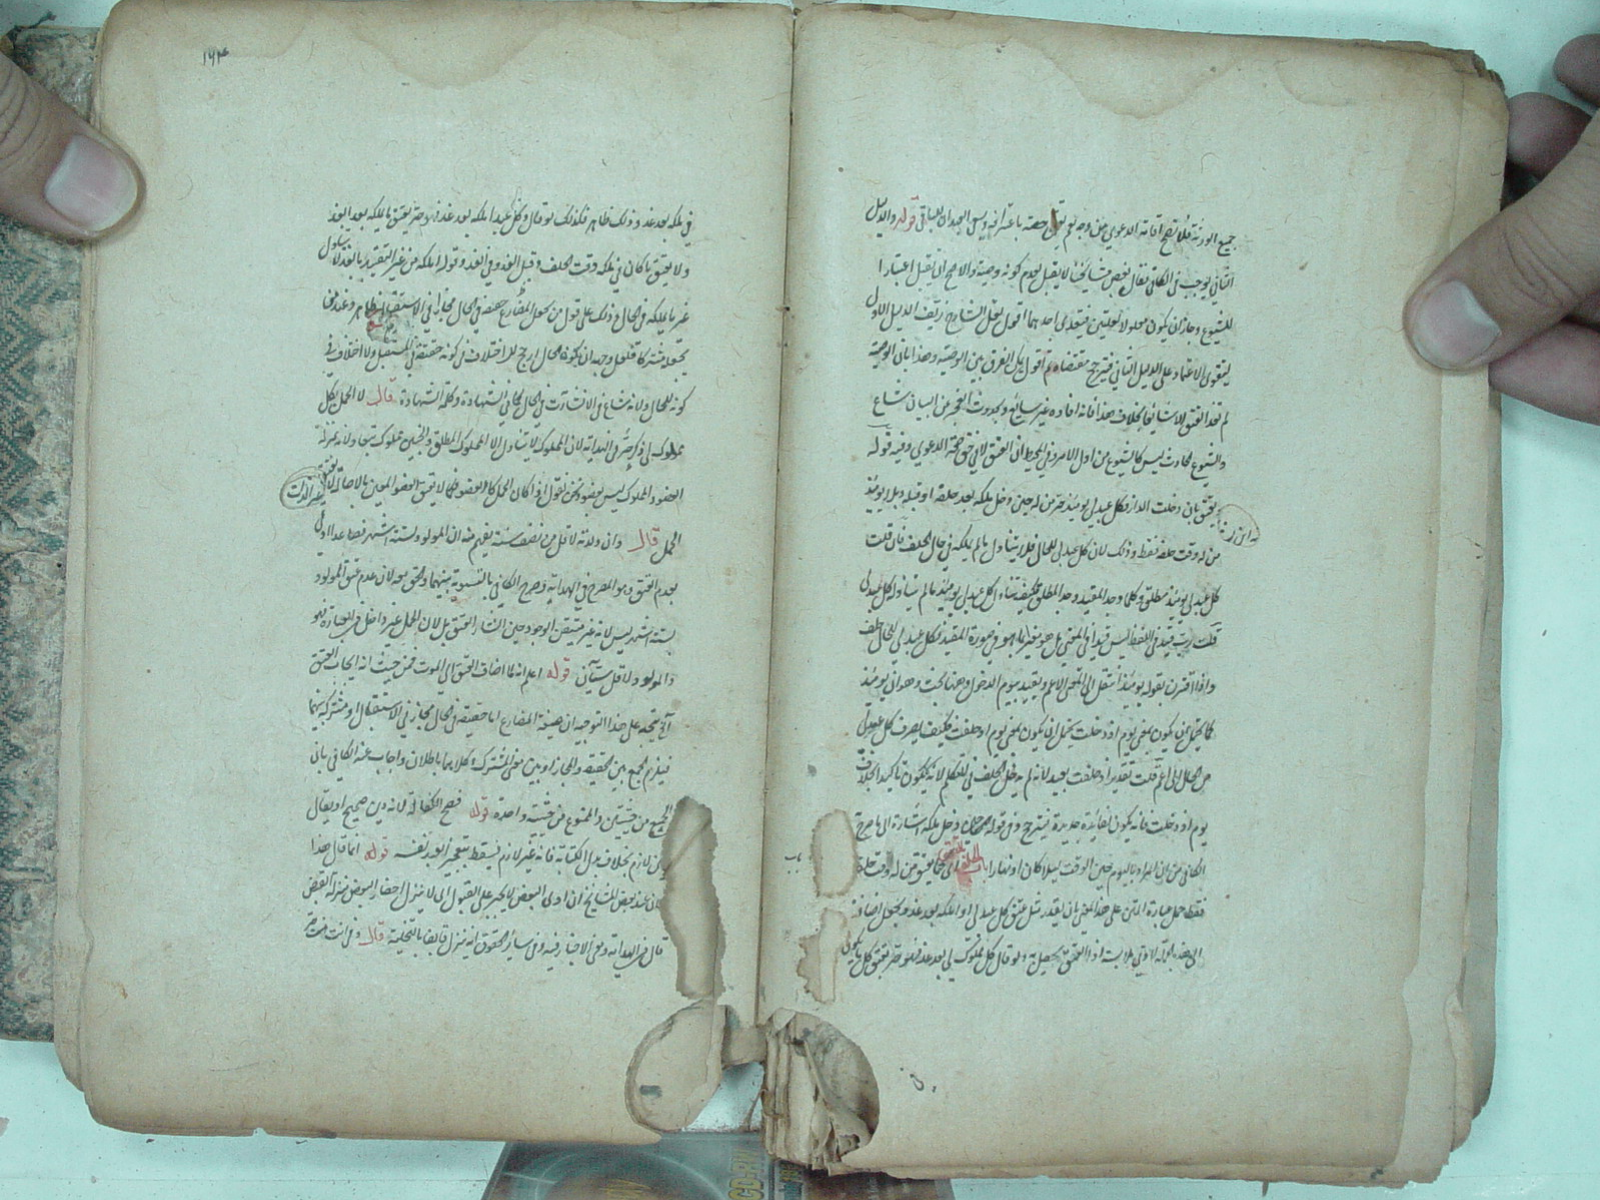 جميع الورثة فلا يصح اقامة الدعوي من وجه ثم يعتق حصته باعترافه ويسعى العبدان للباقي قوله والدليل
الثاني يوجب في الكافي يقال بعض مشايخنا لا يقبل لعدم كونه وصية والاصح ان يقبل اعتبارا
للشيوع وجاز ان يكون معلولا لعلتين فيتعدى احدهما اقول لعل الشارح زيف الدليل الاول
ليتقوى الاعتماد على الدليل الثاني فيترجح مقتضاه ثم اقول يمكن الفرق بين الوصية وهذا بان الوصية
لم تفد العتق الا شائعا بخلاف هذا فانه افاده غير شائع وبحدوث العجز من البيان شاع
والشيوع الحادث ليس كالشيوع من اول الامر وفي المحيط ان العتق لا في حق صحة الدعوي وفيه قوله
يعتق بان دخلت الدار فكل عبد لي يومئذ حر من له حين دخل ملكه بعد حلفه او قبله وبلا يومئذ
من له وقت حلفه فقط وذلك لان كل عبد لي للحال فلا يتناول ما لم يملكه في حال الحلف فان قلت
كل عبد لي يومئذ مطلق وكلما وجد المقيد وجد المطلق فكيف تناول كل عبد لي يومئذ ما لم يتناوله كل عبد لي
قلت رب قيد في اللفظ ليس قيدا في المعنى بل هو مغير لما هو في صورة المقيد فكل عبد لي للحال
واذا اقترن بقوله يومئذ انتقل الى المعنى الاعم ويقيد بيوم الدخول وههنا بحث وهو ان يومئذ
كما يحتمل ان يكون بمعنى يوم اذ دخلت يحتمل ان يكون بمعنى يوم اذ حلفت فكيف يصرف كل عبد لي
من الحال الى اعم قلت تقدير اذ حلفت بعيد لانه لم يدخل الحلف في التكلم لانه يكون تاكيدا بخلاف
يوم اذ دخلت فانه يكون لفائدة جديدة فيترجح وفي قوله دخل ملكه اشارة الى ما صرح
الكافي من ان المراد باليوم حين الوقت ليلا كان او نهارا باب الحلف بالعتق كما يعتق من له وقت حلفه
فقط حمل عبارة المتن على هذا المعنى بان يقدر مثل عتق كل عبد لي او املكه بعد غد ويجعل اضافته
الى بعد لادنى ملابسة اذ العتق يحصل به ولو قال كل مملوك لي بعد غد فهو حر يعتق كل ما يكون
له ابن زنا
١٦٣
في ملكه بعد غد وذلك ظاهر فكذلك لو قال وكل عبد املكه بعد غد فهو حر يعتق ما يملكه بعد الغد
ولا يعتق ما كان في ملكه وقت الحلف وقبل الغد وفي الغد وقوله املكه من غير التقييد بالغد لا يتناول
غير ما يملكه في الحال وذلك على قول من جعل المضارع حقيقة في الحال مجازا في الاستقبال ظاهر وعند من
يجعله مشتركا فلعل وجهه ان كونه للحال ارجح للاختلاف في كونه حقيقة في المستقبل ولا اختلاف في
كونه للحال ولانه شاع في الانشاءات في الحال كما في الشهادة وكلمة الشهادة قال لا الحمل بكل
مملوك لي ذكر حر في الهداية لان المملوك لا يتناول الا المملوك المطلق والجنين مملوك تبعا ولانه بمنزلة
العضو والمملوك ليس بعضو ونحن نقول اذا كان الحمل كالعضو فكما لا يعتق العضو المعين بالاصالة لا يعتق
الحمل قال وان ولدته لاقل من نصف سنة يفهم منه ان المولود لستة اشهر فصاعدا اولى
بعدم العتق وهو المصرح في الهداية وصرح الكافي بالتسوية بينهما والحق معه لان عدم عتق المولود
لستة اشهر ليس لانه غير متيقن الوجود حين انشاء العتق بل لان الحمل غير داخل في العبارة فهو
والمولود لاقل سيان قوله اعلم انه لما اضاف العتق الى الموت فمن حيث انه ايجاب العتق
الخ يتجه على هذا التوجيه ان صيغة المضارع اما حقيقة في الحال مجاز في الاستقبال او مشترك بينهما
فيلزم الجمع بين الحقيقة والمجاز او بين معنى المشترك وكلاهما باطلان واجاب عنه الكافي بان
الجمع من جهتين والممنوع من جهة واحدة قوله فصح الكفالة لانه دين صحيح او يقال
دين لازم بخلاف بدل الكتابة فانه غير لازم فيسقط بتعجيز العبد نفسه قوله انما قال هذا
لان عند بعض المشايخ ان ادى البعض لا يجبر على القبول اي لا ينزل احضار البعض منزلة القبض
قال في الهداية ومعنى الاجبار فيه وفي سائر الحقوق انه ينزل قابضا بالتخلية قال وفي انت حر